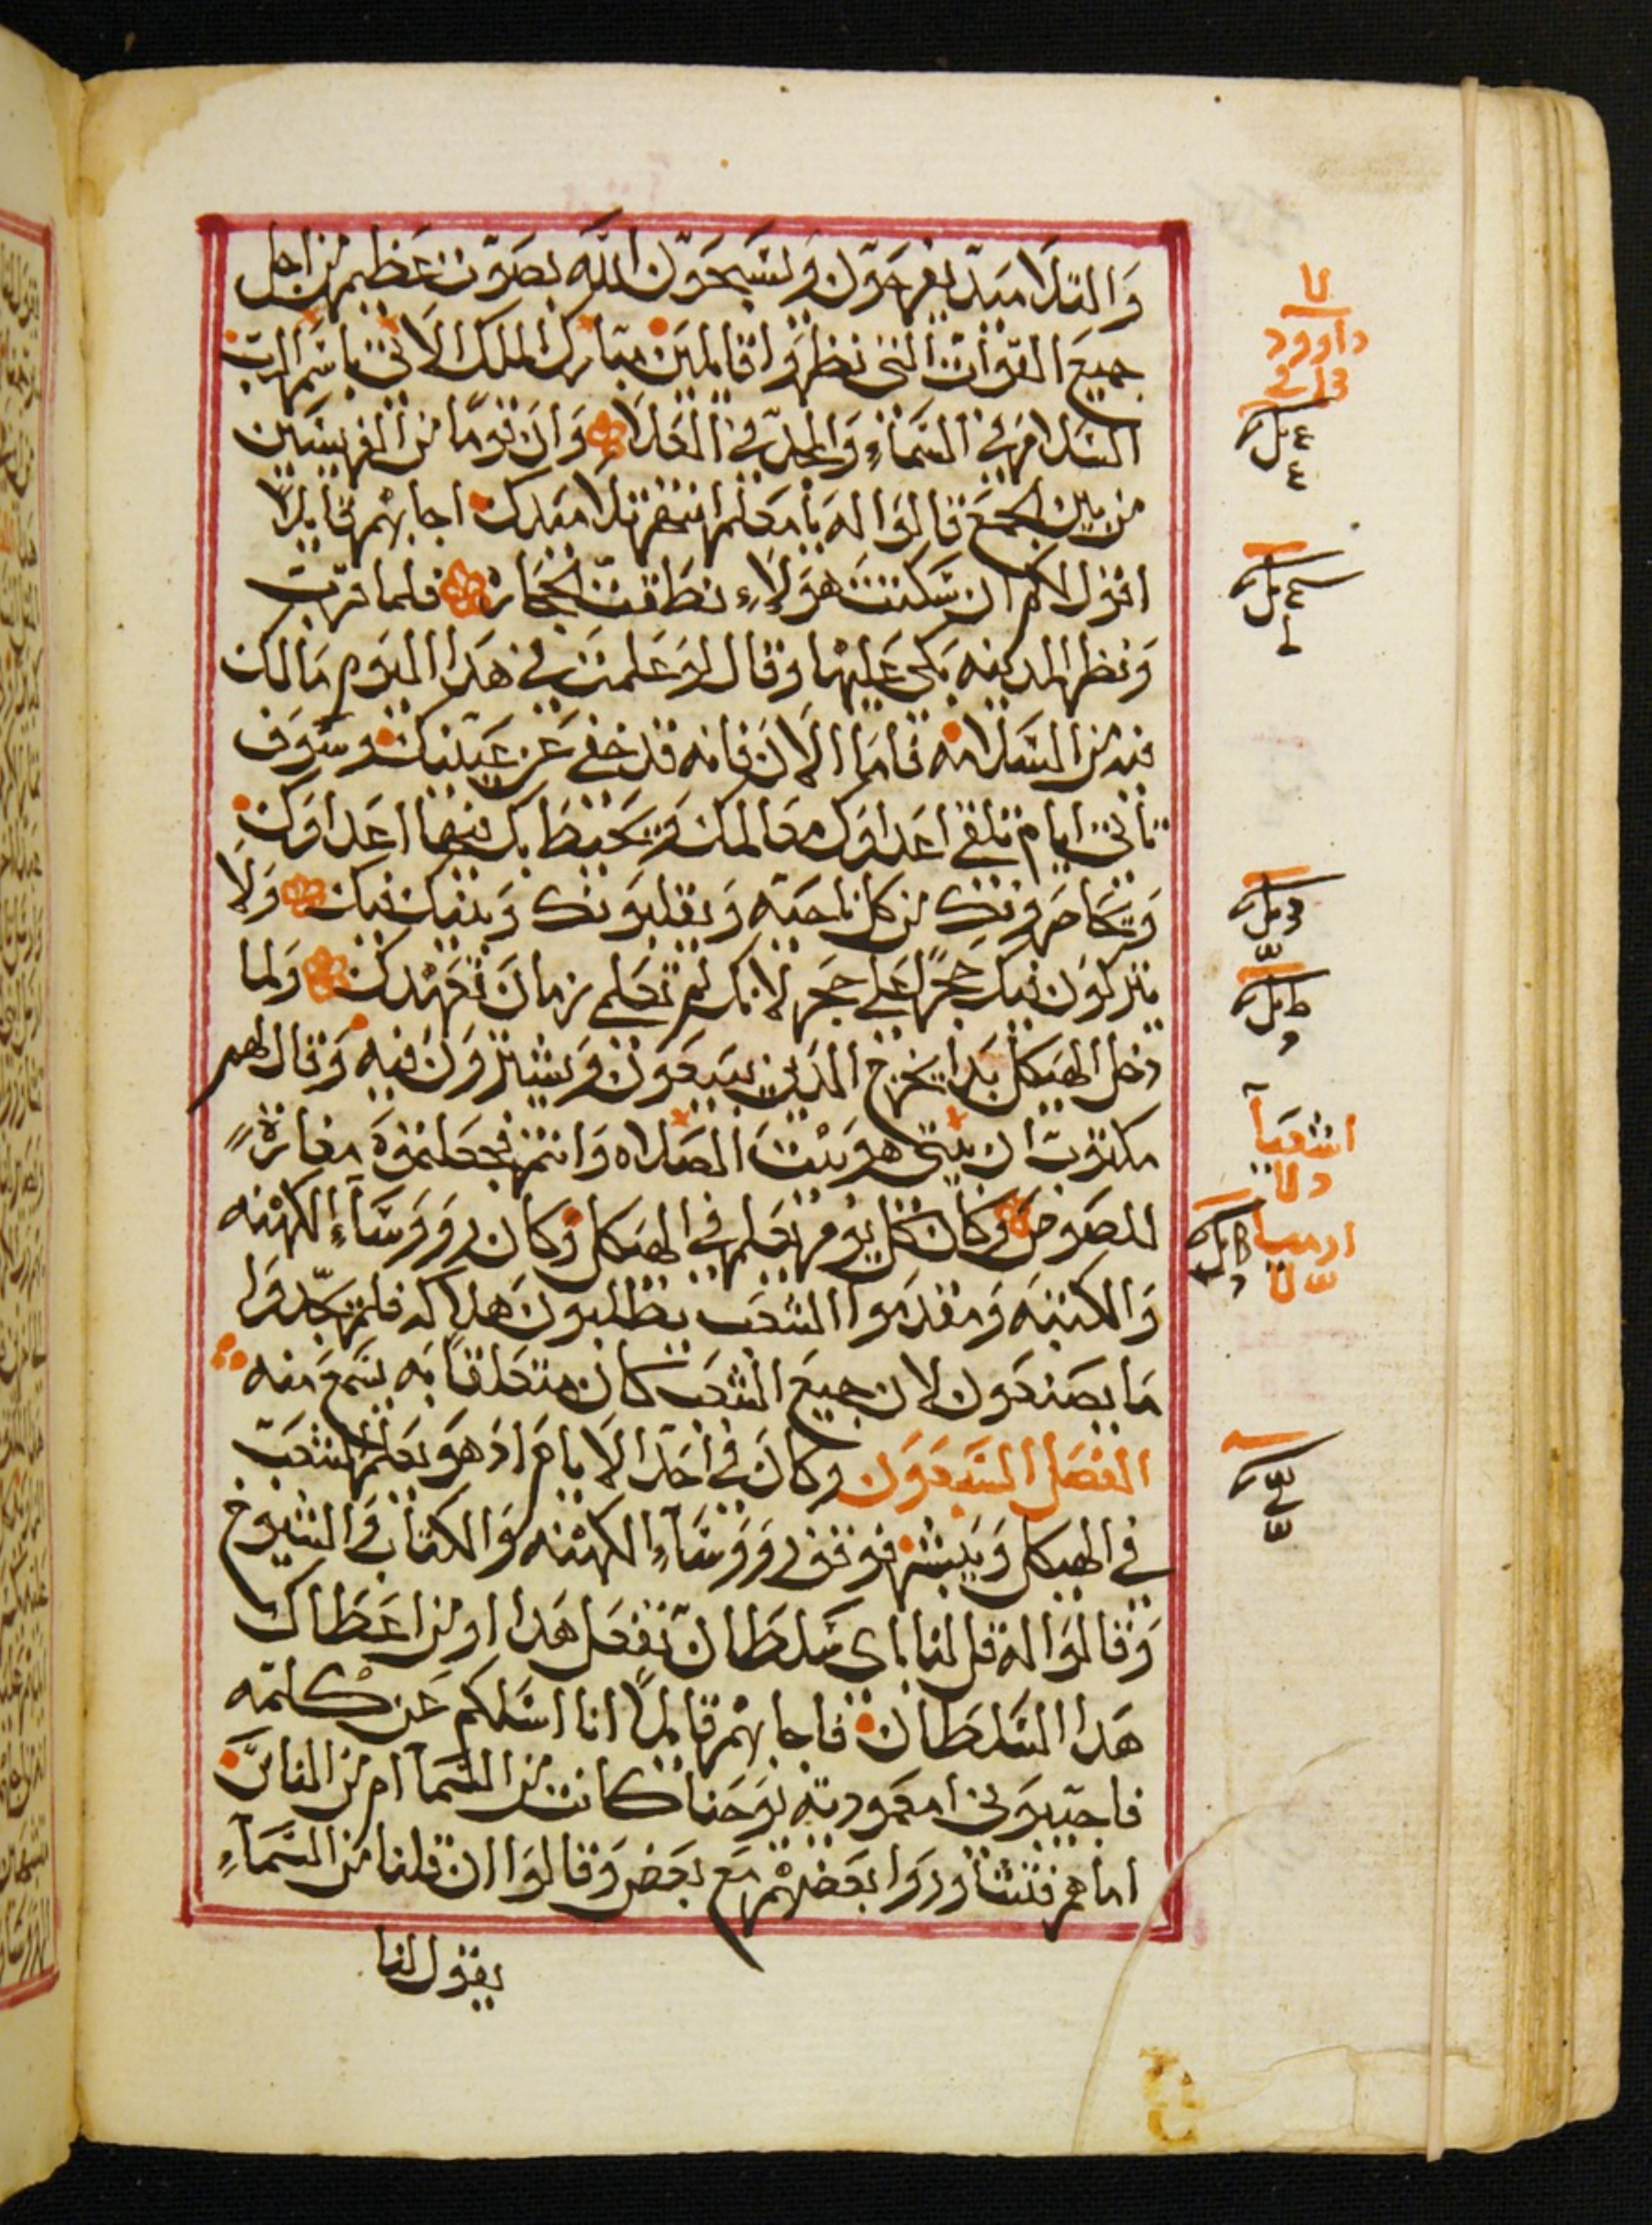 والتلاميد يفرحون ويسبحون الله بصوت عظيم من اجل
جميع القوات التى نظروا قايلين مبارك الملك الاتى باسم الرب
السلام فى السماء والمجد فى العلا وان قوما من الفريسيين
من بين الجمع قالوا له يا معلم انتهر تلاميدك اجابهم قايلا
اقول لكم ان سكتت هولاء نطقت الحجاره فلما قرب
ونظر المدينه بكى عليها وقال لو علمت فى هدا اليوم مالك
فيه من السلامه فاما الان فانه قد خفى عن عينيك وسوف
تاتى ايام تلقى اعداوك معالمك ويحيط بك فيها اعداوك
ويحاصرونك من كل ناحيه ويقلبونك وبنيك فيك ولا
يتركون فيك حجرا على حجر لانك لم تعلمى زمان تعهدك ولما
دخل الهيكل بدا يخرج الدين يبيعون ويشترون فيه وقال لهم
مكتوب ان بيتى هو بيت الصلاه وانتم فجعلتموه مغارة
للصوص وكان كل يوم يعلم فى الهيكل وكان رووساء الكهنه
والكتبه ومقدموا الشعب يطلبون هلاكه فلم يجدوا
ما يصنعون لان جميع الشعب كان متعلقا به يسمع منه
الفصل السبعون وكان فى احد الايام اد هو يعلم الشعب
فى الهيكل ويبشر فوقف رووساء الكهنه والكتاب والشيوخ
وقالوا له قل لنا باى سلطان تفعل هدا او من اعطاك
هدا السلطان فاجابهم قايلا انا اسلكم عن كلمه
فاجيبونى امعموديه يوحنا كانت من السما ام من الناس
اما هم فتشاوروا بعضهم مع بعض وقالوا ان قلنا من السماء
يقول لنا
داوود
اشعيا
ارميا